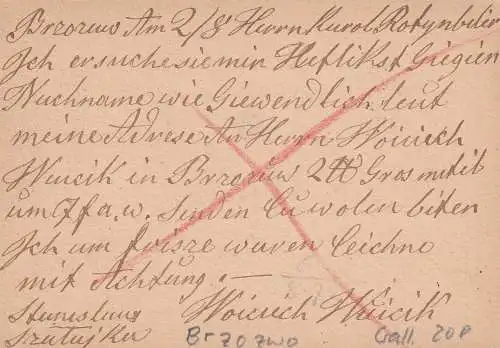 Brzozuw Am 2/8 Herrn Karol Rotynbiler
Ich ersuche sie mir Heflikst Gegien
Nuchname wie Giewendlich leut
meine Adrese An Herrn Woiciech
Wucik in Brzozuw 2 Gros
um 7 f a. w. Senden Cu wolen biten
Ich um frisze waren Ceichne
mit Achtung. —
Stuneslaus Woiciech Wucik
Szatujku Brzozwo Gall. 20P